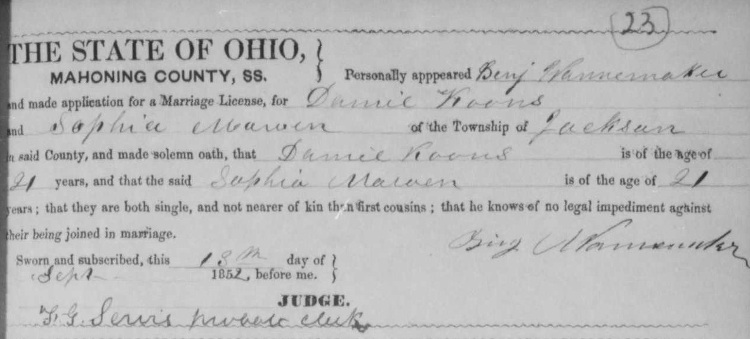 23
THE STATE OF OHIO,
MAHONING COUNTY, SS. Personally apppeared Benj Wannemaker
and made application for a Marriage License, for Daniel Koons
and Sophia Marven of the Township of Jackson
in said County, and made solemn oath, that Daniel Koons is of the age of
21 years, and that the said Sophia Marven is of the age of 21
years; that they are both single, and not nearer of kin than first cousins; that he knows of no legal impediment against
their being joined in marriage.
Benj Wannemaker
Sworn and subscribed, this 13th day of
Sept 1852, before me.
JUDGE.
F. G. Servis probate clerk